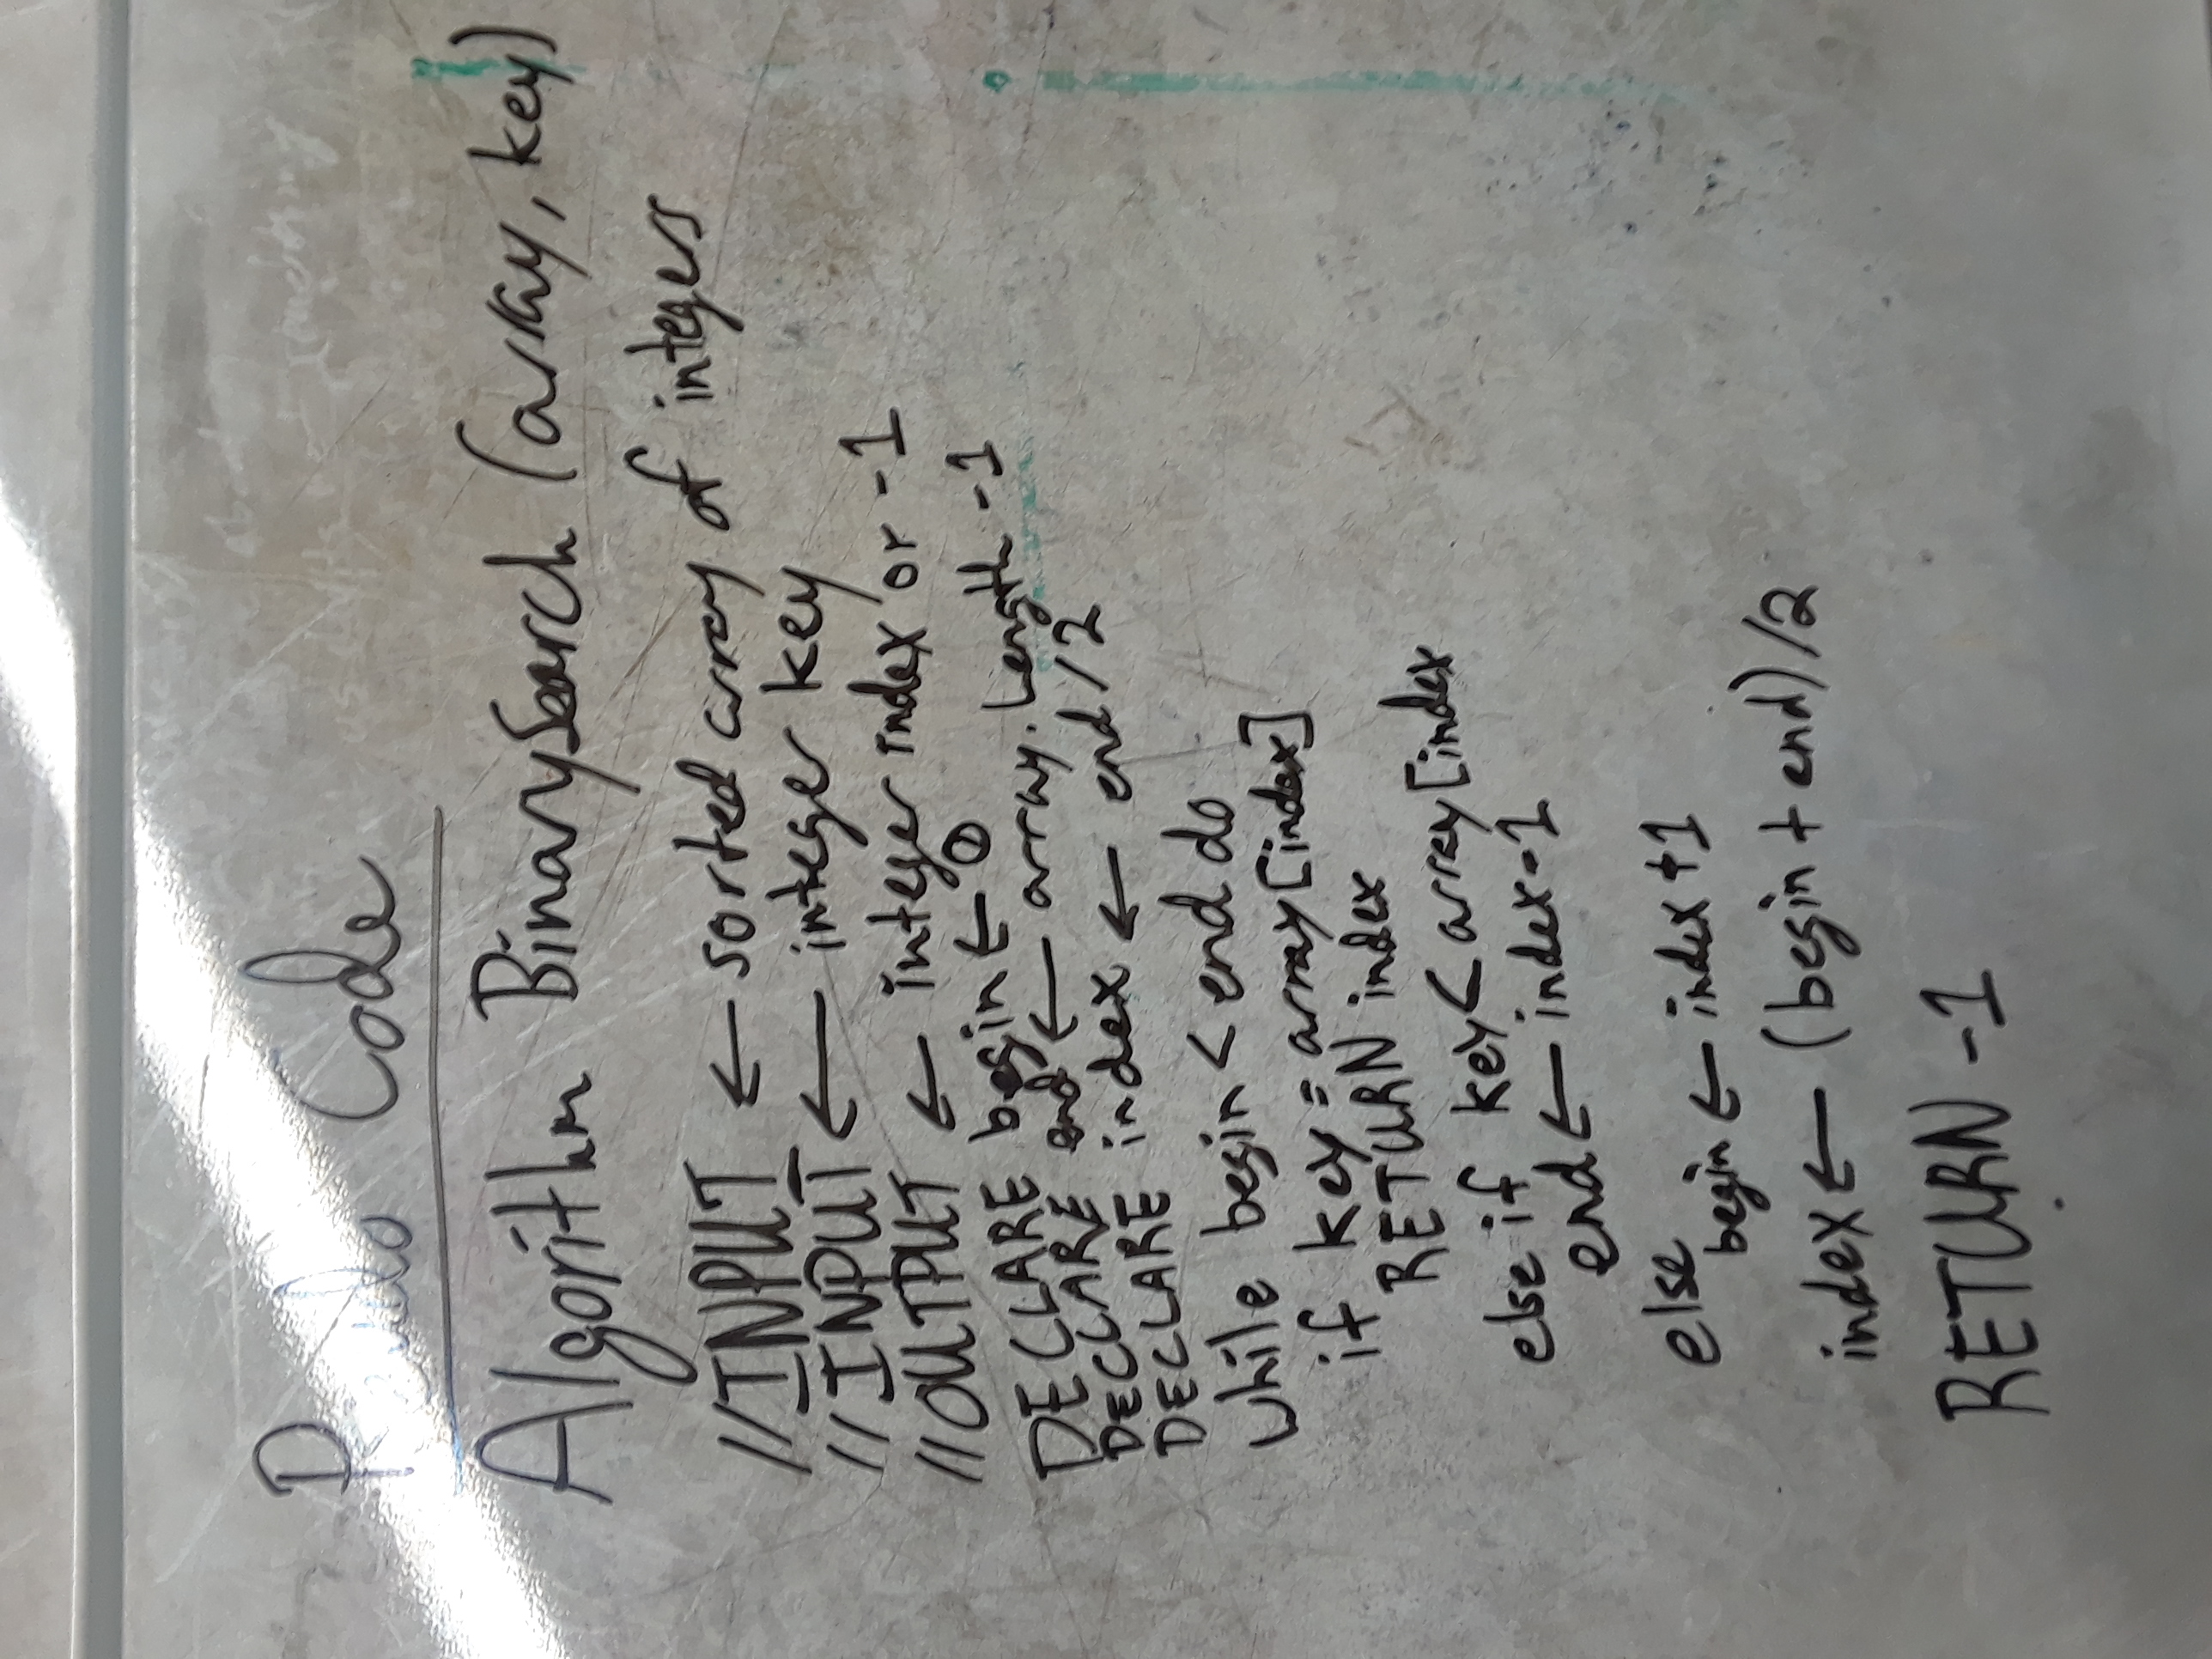 Pseudo Code
Algorithm BinarySearch (array, key)
//INPUT ← sorted array of integers
//INPUT ← integer key
//OUTPUT ← integer index or -1
DECLARE begin ← 0
DECLARE end ← array.Length -1
DECLARE index ← end/2
while begin < end do
if key = array[index]
RETURN index
else if key < array[index
end ← index-1
else
begin ← index+1
index ← (begin + end)/2
RETURN -1